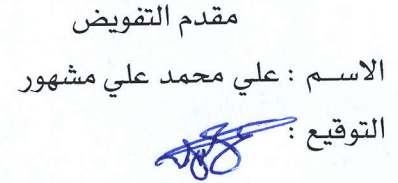 مقدم التفويض
الاســم : علي محمد علي مشهور
التوقيع :